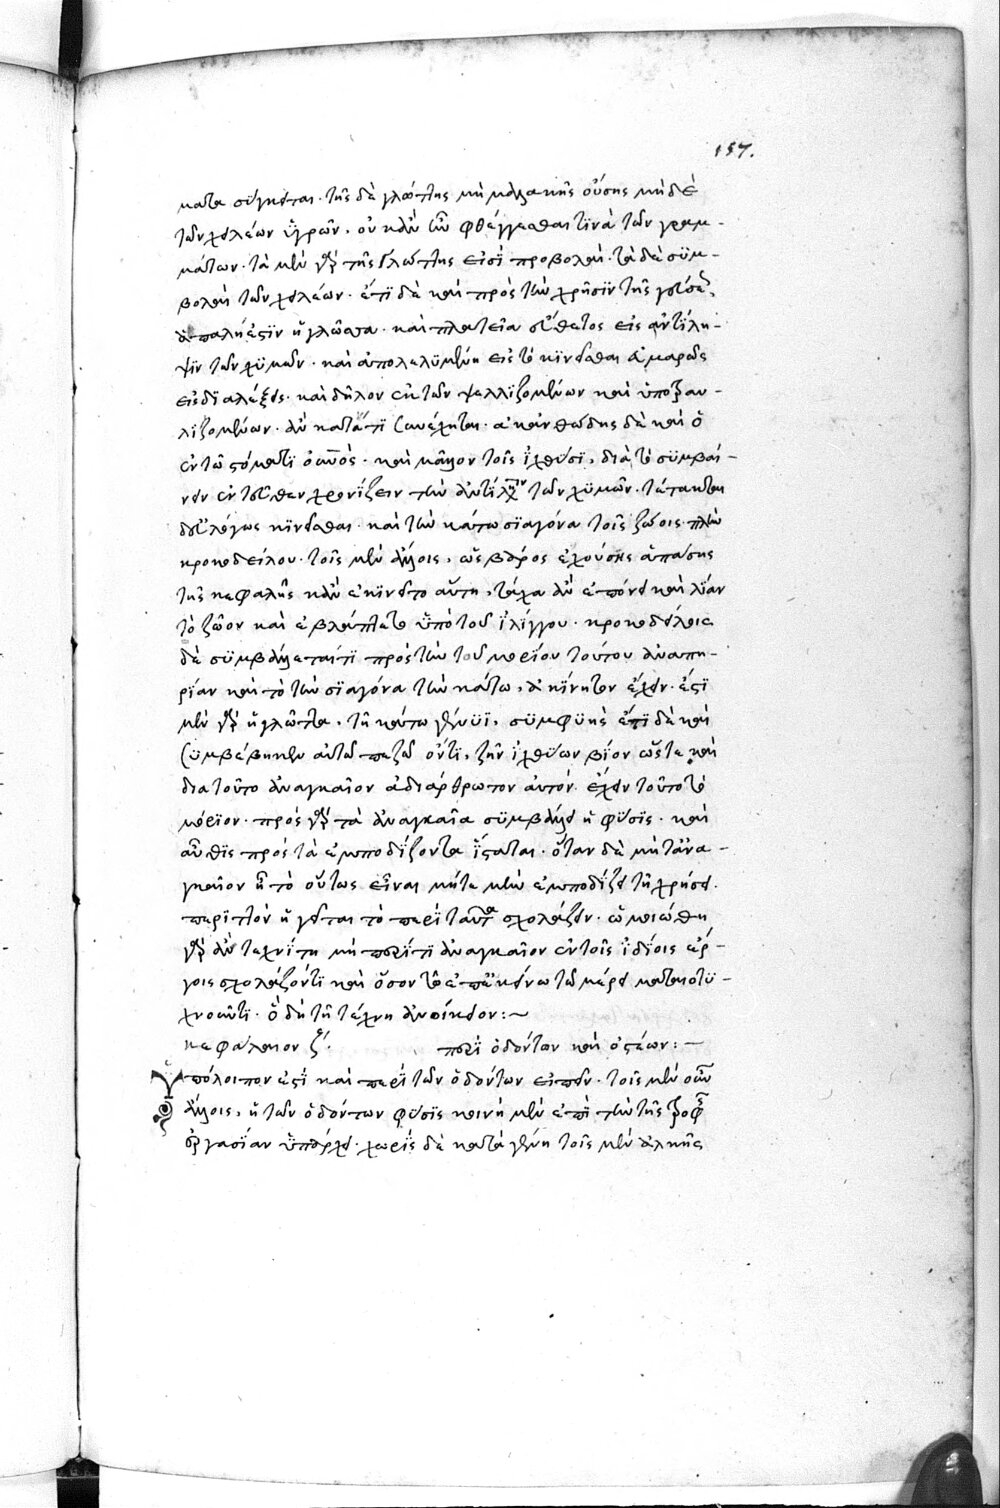 157.
ματα σύγκειται. τῆς δὲ γλώττης μὴ μαλακῆς οὔσης μὴ δὲ
τῶν χειλέων ὑγρῶν. οὐκ ἂν ἦν φθέγγεσθαι τινὰ τῶν γραμ-
μάτων. τὰ μὲν γὰρ τῆς γλώττης εἰσὶ προβολαὶ. τὰ δὲ συμ-
βολαὶ τῶν χειλέων. ἔτι δὲ καὶ πρὸς τὴν χρῆσιν τῆς γεύσεως,
ἁπαλή ἐστιν ἡ γλῶσσα. καὶ πλατεῖα εὔθετος εἰς ἀντίλη-
ψιν τῶν χυμῶν. καὶ ἀπολελυμένη εἰς τὸ κινεῖσθαι
εἰς διαλέξεις. καὶ δῆλον ἐκ τῶν ψελλιζομένων καὶ ὑποτραυ-
λιζομένων. ἂν κατά τι συνέχηται. ἀκανθώδης δὲ καὶ ὁ
ἐν τῷ στόματι οὐρανός. καὶ μᾶλλον τοῖς ἰχθύσι, διὰ τὸ συμβαί-
νειν ἐντεῦθεν χρονίζειν τὴν ἀντίληψιν τῶν χυμῶν.
εὐλόγως κινεῖσθαι. καὶ τὴν κάτω σιαγόνα τοῖς ζώοις πλὴν
κροκοδείλου. τοῖς μὲν ἄλλοις, ὡς βάρος ἐχούσης ἁπάσης
τῆς κεφαλῆς κἂν ἐκινεῖτο αὕτη, τάχα ἂν ἐπόνει καὶ λίαν
τὸ ζῶον καὶ ἐβλάπτετο ὑπὸ τοῦ ἰλίγγου. κροκοδείλοις
δὲ συμβάλλεταί τι πρὸς τὴν τοῦ μορίου τούτου ἀναπη-
ρίαν καὶ τὸ τὴν σιαγόνα τὴν κάτω, ἀκίνητον ἔχειν. ἔστι
μὲν γὰρ ἡ γλῶττα, τῇ κάτω γένυϊ, συμφυὴς ἔτι δὲ καὶ
συμβέβηκεν αὐτῷ πεζῷ ὄντι, ζῆν ἰχθύων βίον ὥστε καὶ
διὰ τοῦτο ἀναγκαῖον ἀδιάρθρωτον αὐτόν. ἔχειν τοῦτο τὸ
μόριον. πρὸς γὰρ τὰ ἀναγκαῖα συμβάλλει ἡ φύσις. καὶ
αὖθις πρὸς τὰ ἐμποδίζοντα ἵσταται. ὅταν δὲ μήτ' ἀνα-
γκαῖον ᾖ τὸ οὕτως εἶναι μήτε μὴν ἐμποδίζει τῇ χρήσει.
περιττὸν ἡγεῖται τὸ περὶ ταῦτα σχολάζειν. ὡμοιώθη
γὰρ ἂν τεχνίτῃ μὴ περί τι ἀναγκαῖον ἐν τοῖς ἰδίοις ἔρ-
γοις σχολάζοντι καὶ ὅσον τὸ ἐπέκεινα τῷ μέρει ματαιοτε-
χνοῦντι. ὃ δὴ τῇ τέχνῃ ἀνοίκειον:~
κεφάλαιον ζʹ. περὶ ὀδόντων καὶ ὀστέων:~
Ὑπόλοιπον ἐστὶ καὶ περὶ τῶν ὀδόντων εἰπεῖν. τοῖς μὲν οὖν
ἄλλοις, ἡ τῶν ὀδόντων φύσις κοινὴ μὲν ἐπὶ τὴν τῆς τροφῆς
ἐργασίαν ὑπάρχει. χωρὶς δὲ κατὰ γένη τοῖς μὲν ἀλκῆς